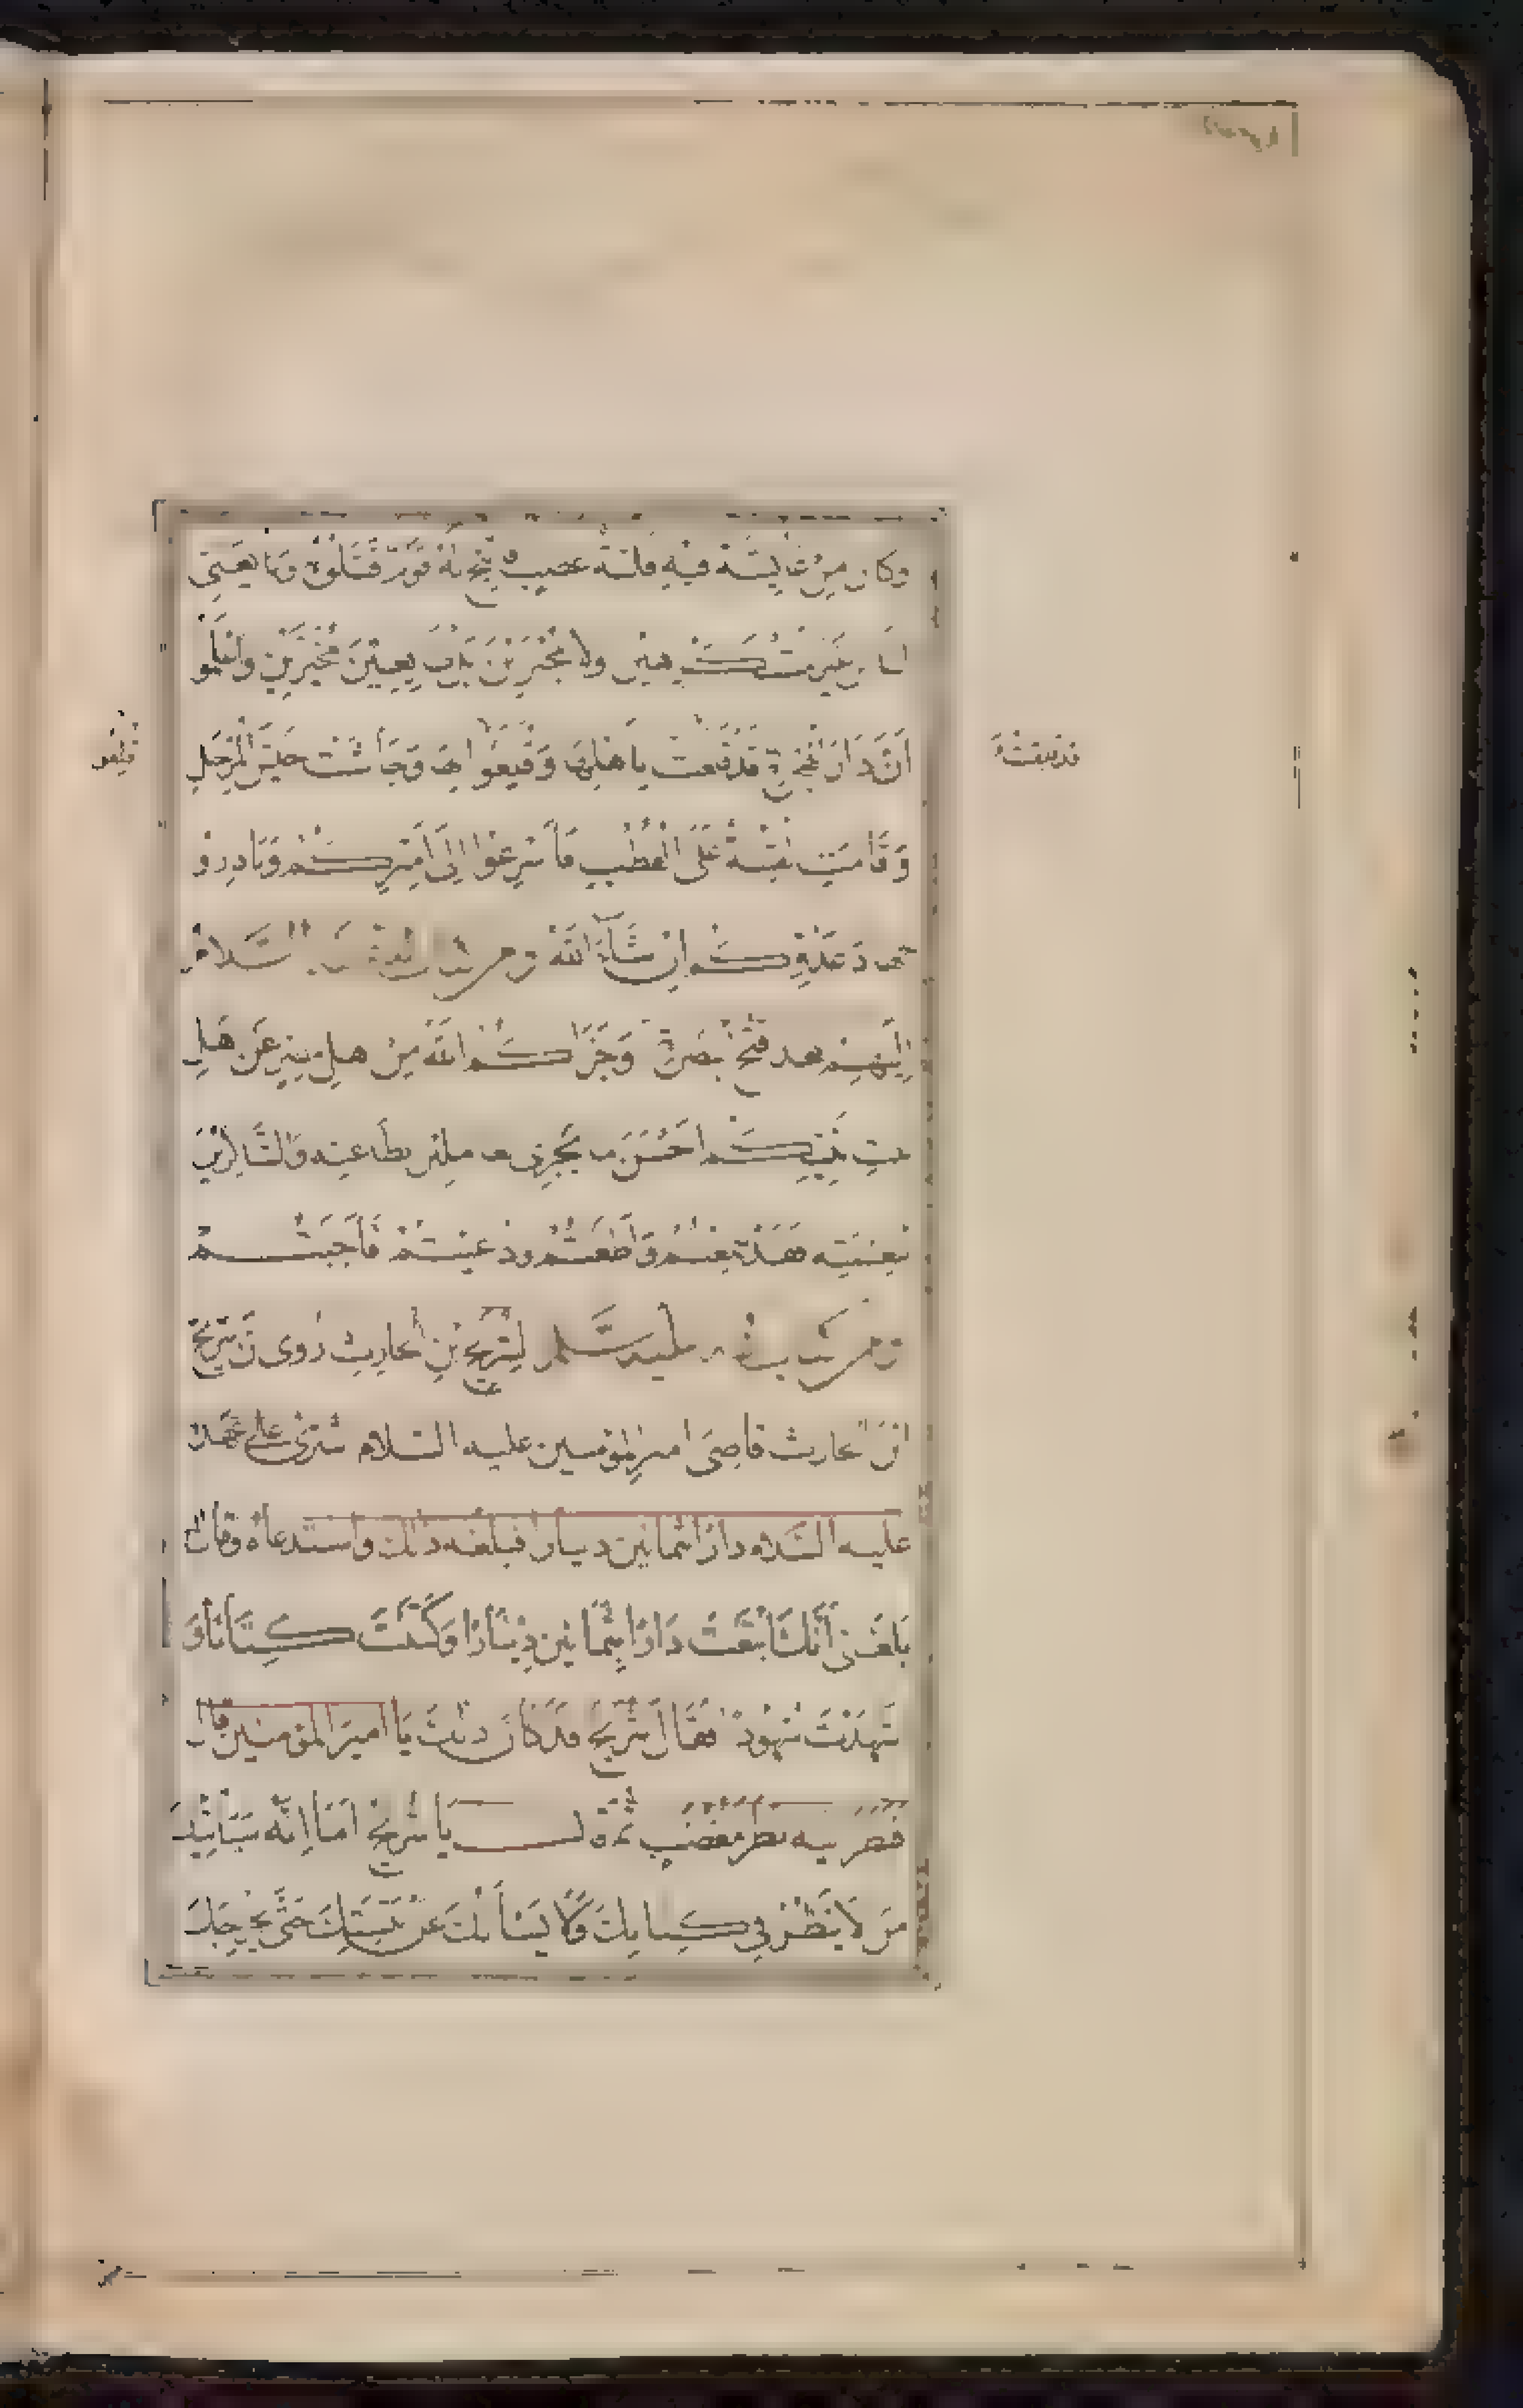 وكان من عائشة فيه فلتة غضب فاتيح له قوم فقتلوه وبايعني
الناس غير مستكرهين ولا مجبرين بل طائعين مخيرين واعلموا
أَنَّ دَارَ الهجرة قَدْ قلعت بِأَهلها وَقلعُوا بها وَجَاشَت جَيْشَ الْمِرْجَلِ
وَقَامَتِ الفتنة عَلَى الْقُطْبِ فَأَسْرِعُوا إِلَى أَمِيرِكُمْ وَبَادِرُوا
جهاد عَدُوِّكُمْ إِنْ شَاءَ اللهُ ومن كتاب له عليه السَّلام
إِلَيْهِم بعد فتح البصرة وَجَزَاكُمُ اللهُ مِنْ اهل مصر عَن اهل
بيت نَبِيِّكُمْ احْسَنَ ما يَجْزِي العاملين بطاعته وَالشَّاكِرِينَ
لنعمته فقد سمعتم وَأَطَعْتُمْ ودعيتُمْ فَأَجَبْتُمْ
ومن كتاب له عليه السَّلم لِشريح بْنِ الحارِثِ رُوِى ان شريح
ابن الحارث قاضِيَ امير المؤمنين عليه السلام اشترى على عهده
عليه السَّلام دارًا بثمانين دينارا فبلغه ذلك واستدعاه وقال له
بَلَغَنِي أَنَّكَ ابْتَعْتَ دَارًا بِثَمَانِينَ دِينَارًا وَكَتَبْتَ كِتَابًا وَ
اشهَدْتَ شُهُودًا فَقَال شُرَيح قَدْ كَانَ ذلِكَ يَا اميرَ المؤمنين قال
فَنظر اليه نظر مُغْضَبٍ ثم قال يَا شُرَيْحُ امَا إِنَّه سَيَأْتِيكَ
مَنْ لَا يَنْظُرُ فِي كِتَابِكَ وَلَا يَسْأَلُكَ عَنْ بَيِّنَتِكَ حَتَّى يُخْرِجَكَ